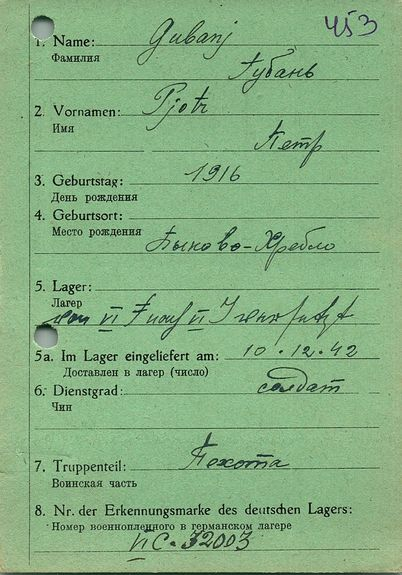 453
1. Name: Gubanj
Фамилия
Губань
2. Vornamen: Pjotr
Имя
Петр
3. Geburtstag: 1916
День рождения
4. Geburtsort:
Место рождения
Быково-Гребло
5. Lager:
Лагер
von VI F nach VI J versetzt
5a. Im Lager eingeliefert am: 10.12.42
Доставлен в лагер (число)
6. Dienstgrad: солдат
Чин
7. Truppenteil: Пехота
Воинская часть
8. Nr. der Erkennungsmarke des deutschen Lagers:
Номер военнопленного в германском лагере
VI C. 32003